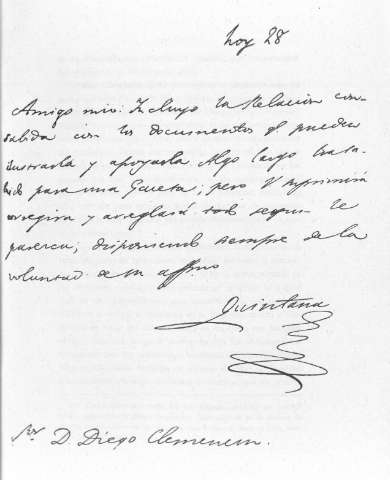 hoy 28
Amigo mio: Incluyo la Relacion con-
valida con los documentos q.e pueden
ilustrarla y apoyarla Algo largo
para una Gaceta; pero V suprimirá
corregirá y arreglará todo segun le
parezca, disponiendo siempre de la
voluntad de su affmo
Quintana
Sr. D. Diego Clemencin.